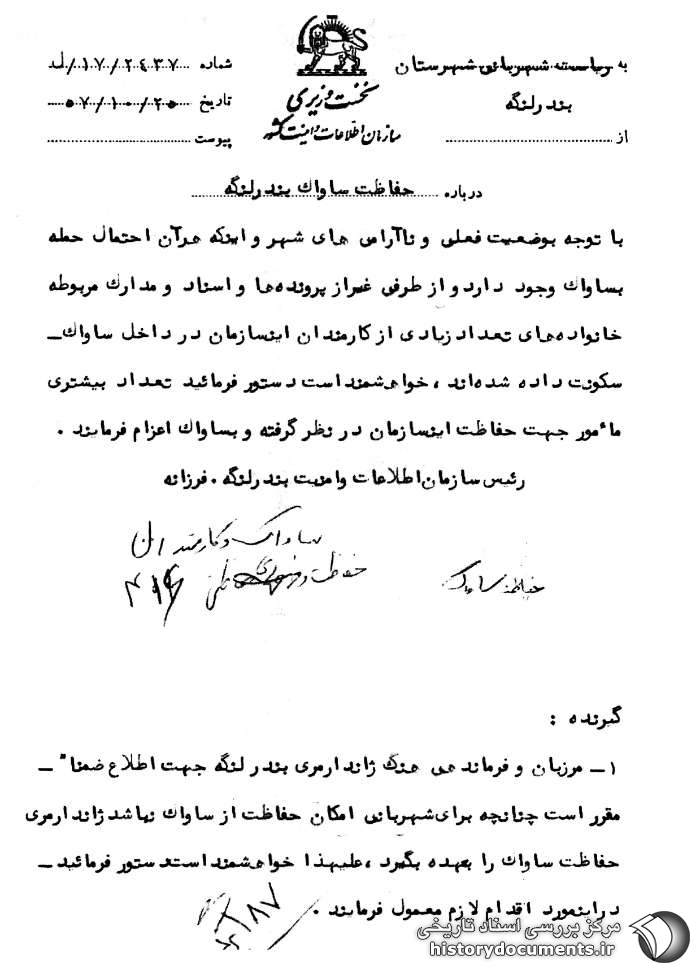 به ریاست شهربانی شهرستان
بندرلنگه
از
نخست وزیری
سازمان اطلاعات و امنیت کشور
شماره ۱۷/۲۴۳۷/لد
تاریخ ۵۷/۱۰/۲۵
پیوست
درباره حفاظت ساواک بندرلنگه
با توجه بوضعیت فعلی و ناآرامی های شهر و اینکه هرآن احتمال حمله
بساواک وجود دارد و از طرفی غیراز پرونده‌ها و اسناد و مدارک مربوطه
خانواده‌های تعداد زیادی از کارمندان اینسازمان در داخل ساواک ــ
سکونت داده شده‌اند ، خواهشمند است دستور فرمائید تعداد بیشتری
مأمور جهت حفاظت اینسازمان در نظر گرفته و بساواک اعزام فرمایند .
رئیس سازمان اطلاعات و امنیت بندرلنگه . فرزانه
ساواک و کارمندان
حفاظت
حفاظت ساواک
گیرنده :
۱ــ مرزبان و فرماندهی هنگ ژاندارمری بندرلنگه جهت اطلاع ضمناً ــ
مقرر است چنانچه برای شهربانی امکان حفاظت از ساواک نباشد ژاندارمری
حفاظت ساواک را بعهده بگیرد ، علیهذا خواهشمند است دستور فرمائید ــ
دراینمورد اقدام لازم معمول فرمایند .
مرکز بررسی اسناد تاریخی
historydocuments.ir